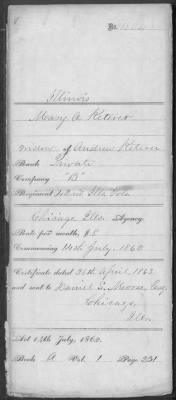 No.
Illinois
Mary A Ketever
widow of Andrew Ketever
Rank Private
Company "B"
Regiment 42nd Ills Vols
Chicago Ills Agency.
Rate per month, $8
Commencing 14th July, 1862
Certificate dated 21st April 1863
and sent to Daniel S. Morse Esq
Chicago
Ills
Act 14th July, 1862.
Book A Vol. 1 Page 231